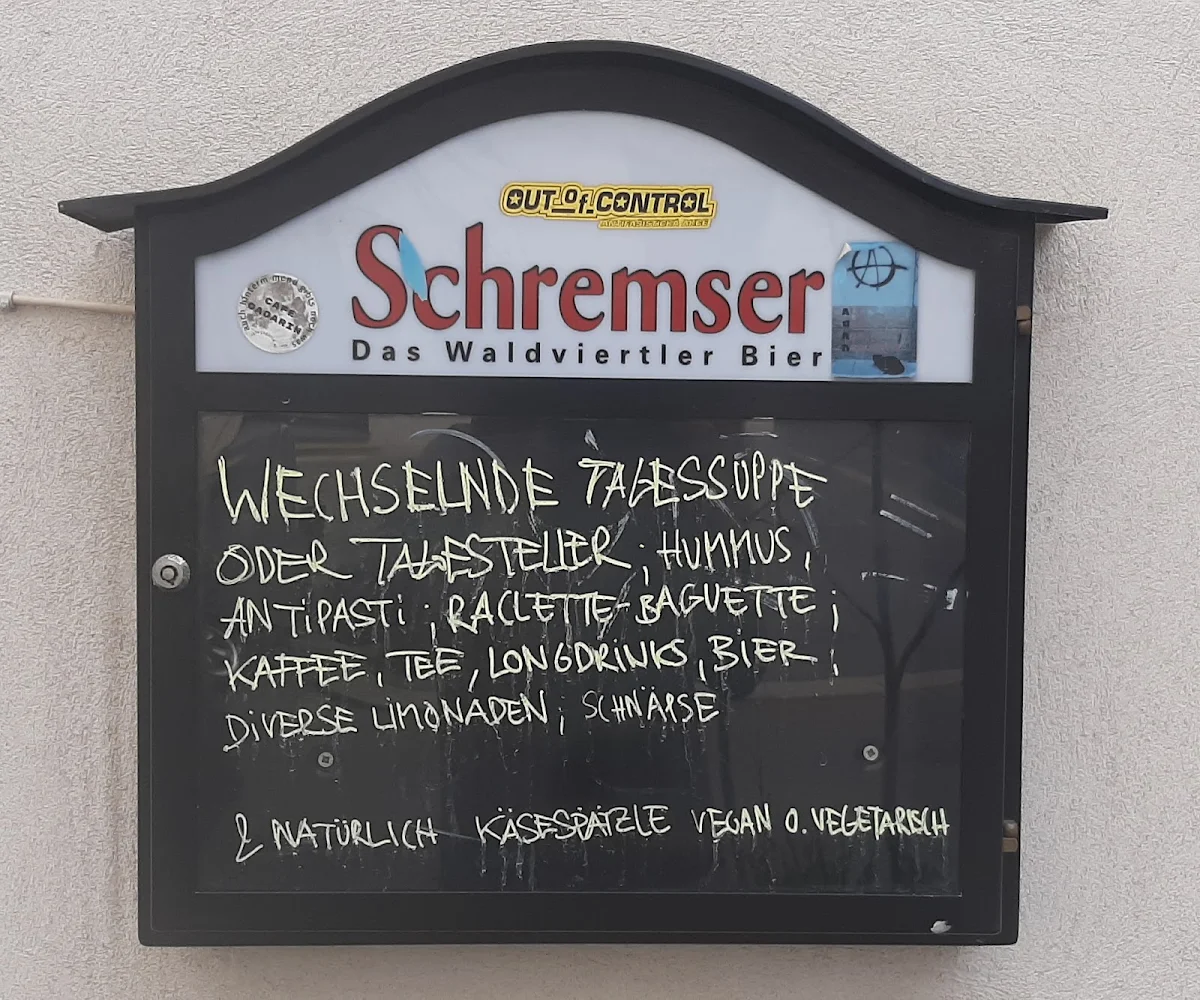 OUT_of_CONTROL
Schremser
CAFE
DADARIN
Das Waldviertler Bier
WECHSELNDE TAGESSUPPE
ODER TAGESTELLER; HUMMUS,
ANTIPASTI; RACLETTE-BAGUETTE;
KAFFEE, TEE, LONGDRINKS, BIER;
DIVERSE LIMONADEN; SCHNÄPSE
& NATÜRLICH KÄSESPÄTZLE VEGAN O. VEGETARISCH